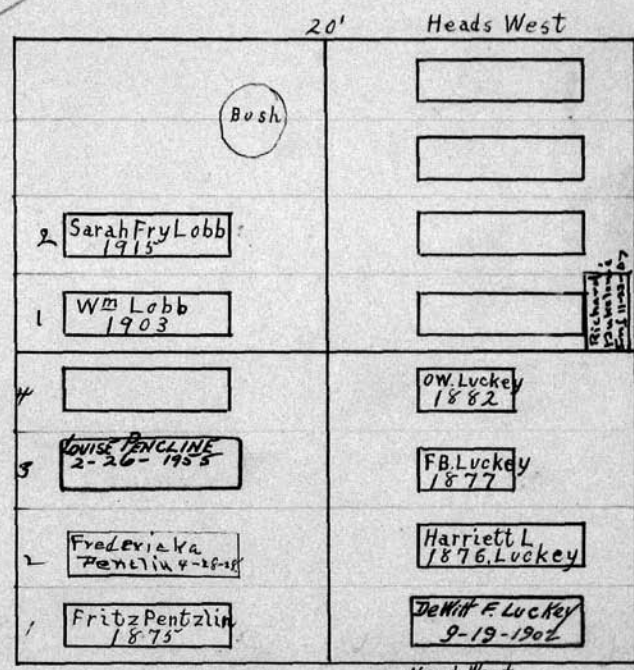 20' Heads West
Bush
2 Sarah Fry Lobb
1915
1 Wm Lobb
1903
Richard
11-23-07
4
3 LOUISE PENCLINE
2-26-1955
2 Fredericka
Pentlin 4-28-28
1 Fritz Pentzlin
1875
OW. Luckey
1882
FB. Luckey
1877
Harriett L
1876. Luckey
DeWitt F. Luckey
9-19-1902